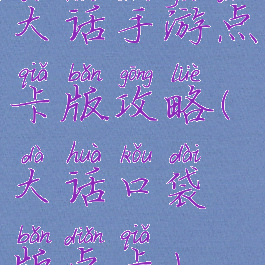 大话手游点
qiǎ bǎn gōng lüè
卡版攻略(
dà huà kǒu dài
大话口袋
bǎn diǎn qiǎ
版点卡)